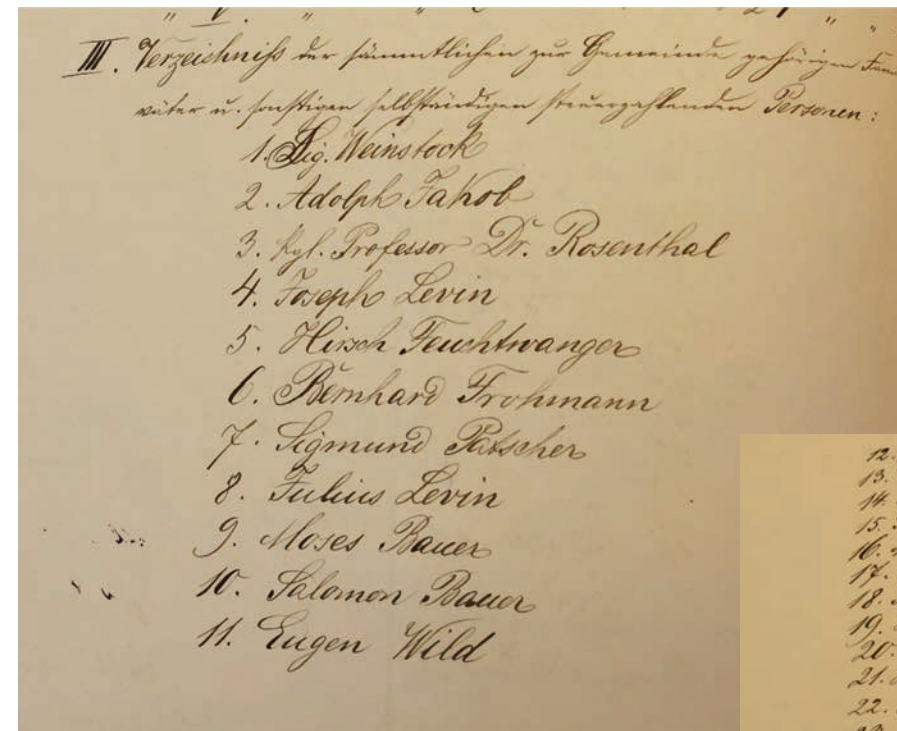 " V. " "
III. Verzeichniß der sämmtlichen zur Gemeinde gehörigen Fam
väter u. sonstigen selbständigen steuerzahlenden Personen:
1. Sig. Weinstock
2. Adolph Jakob
3. kgl. Professor Dr. Rosenthal
4. Joseph Levin
5. Hirsch Feuchtwanger
6. Bernhard Frohmann
7. Sigmund Patscher
8. Julius Levin
9. Moses Bauer
10. Salomon Bauer
11. Eugen Wild
12.
13.
14.
15.
16.
17.
18.
19.
20.
21.
22.